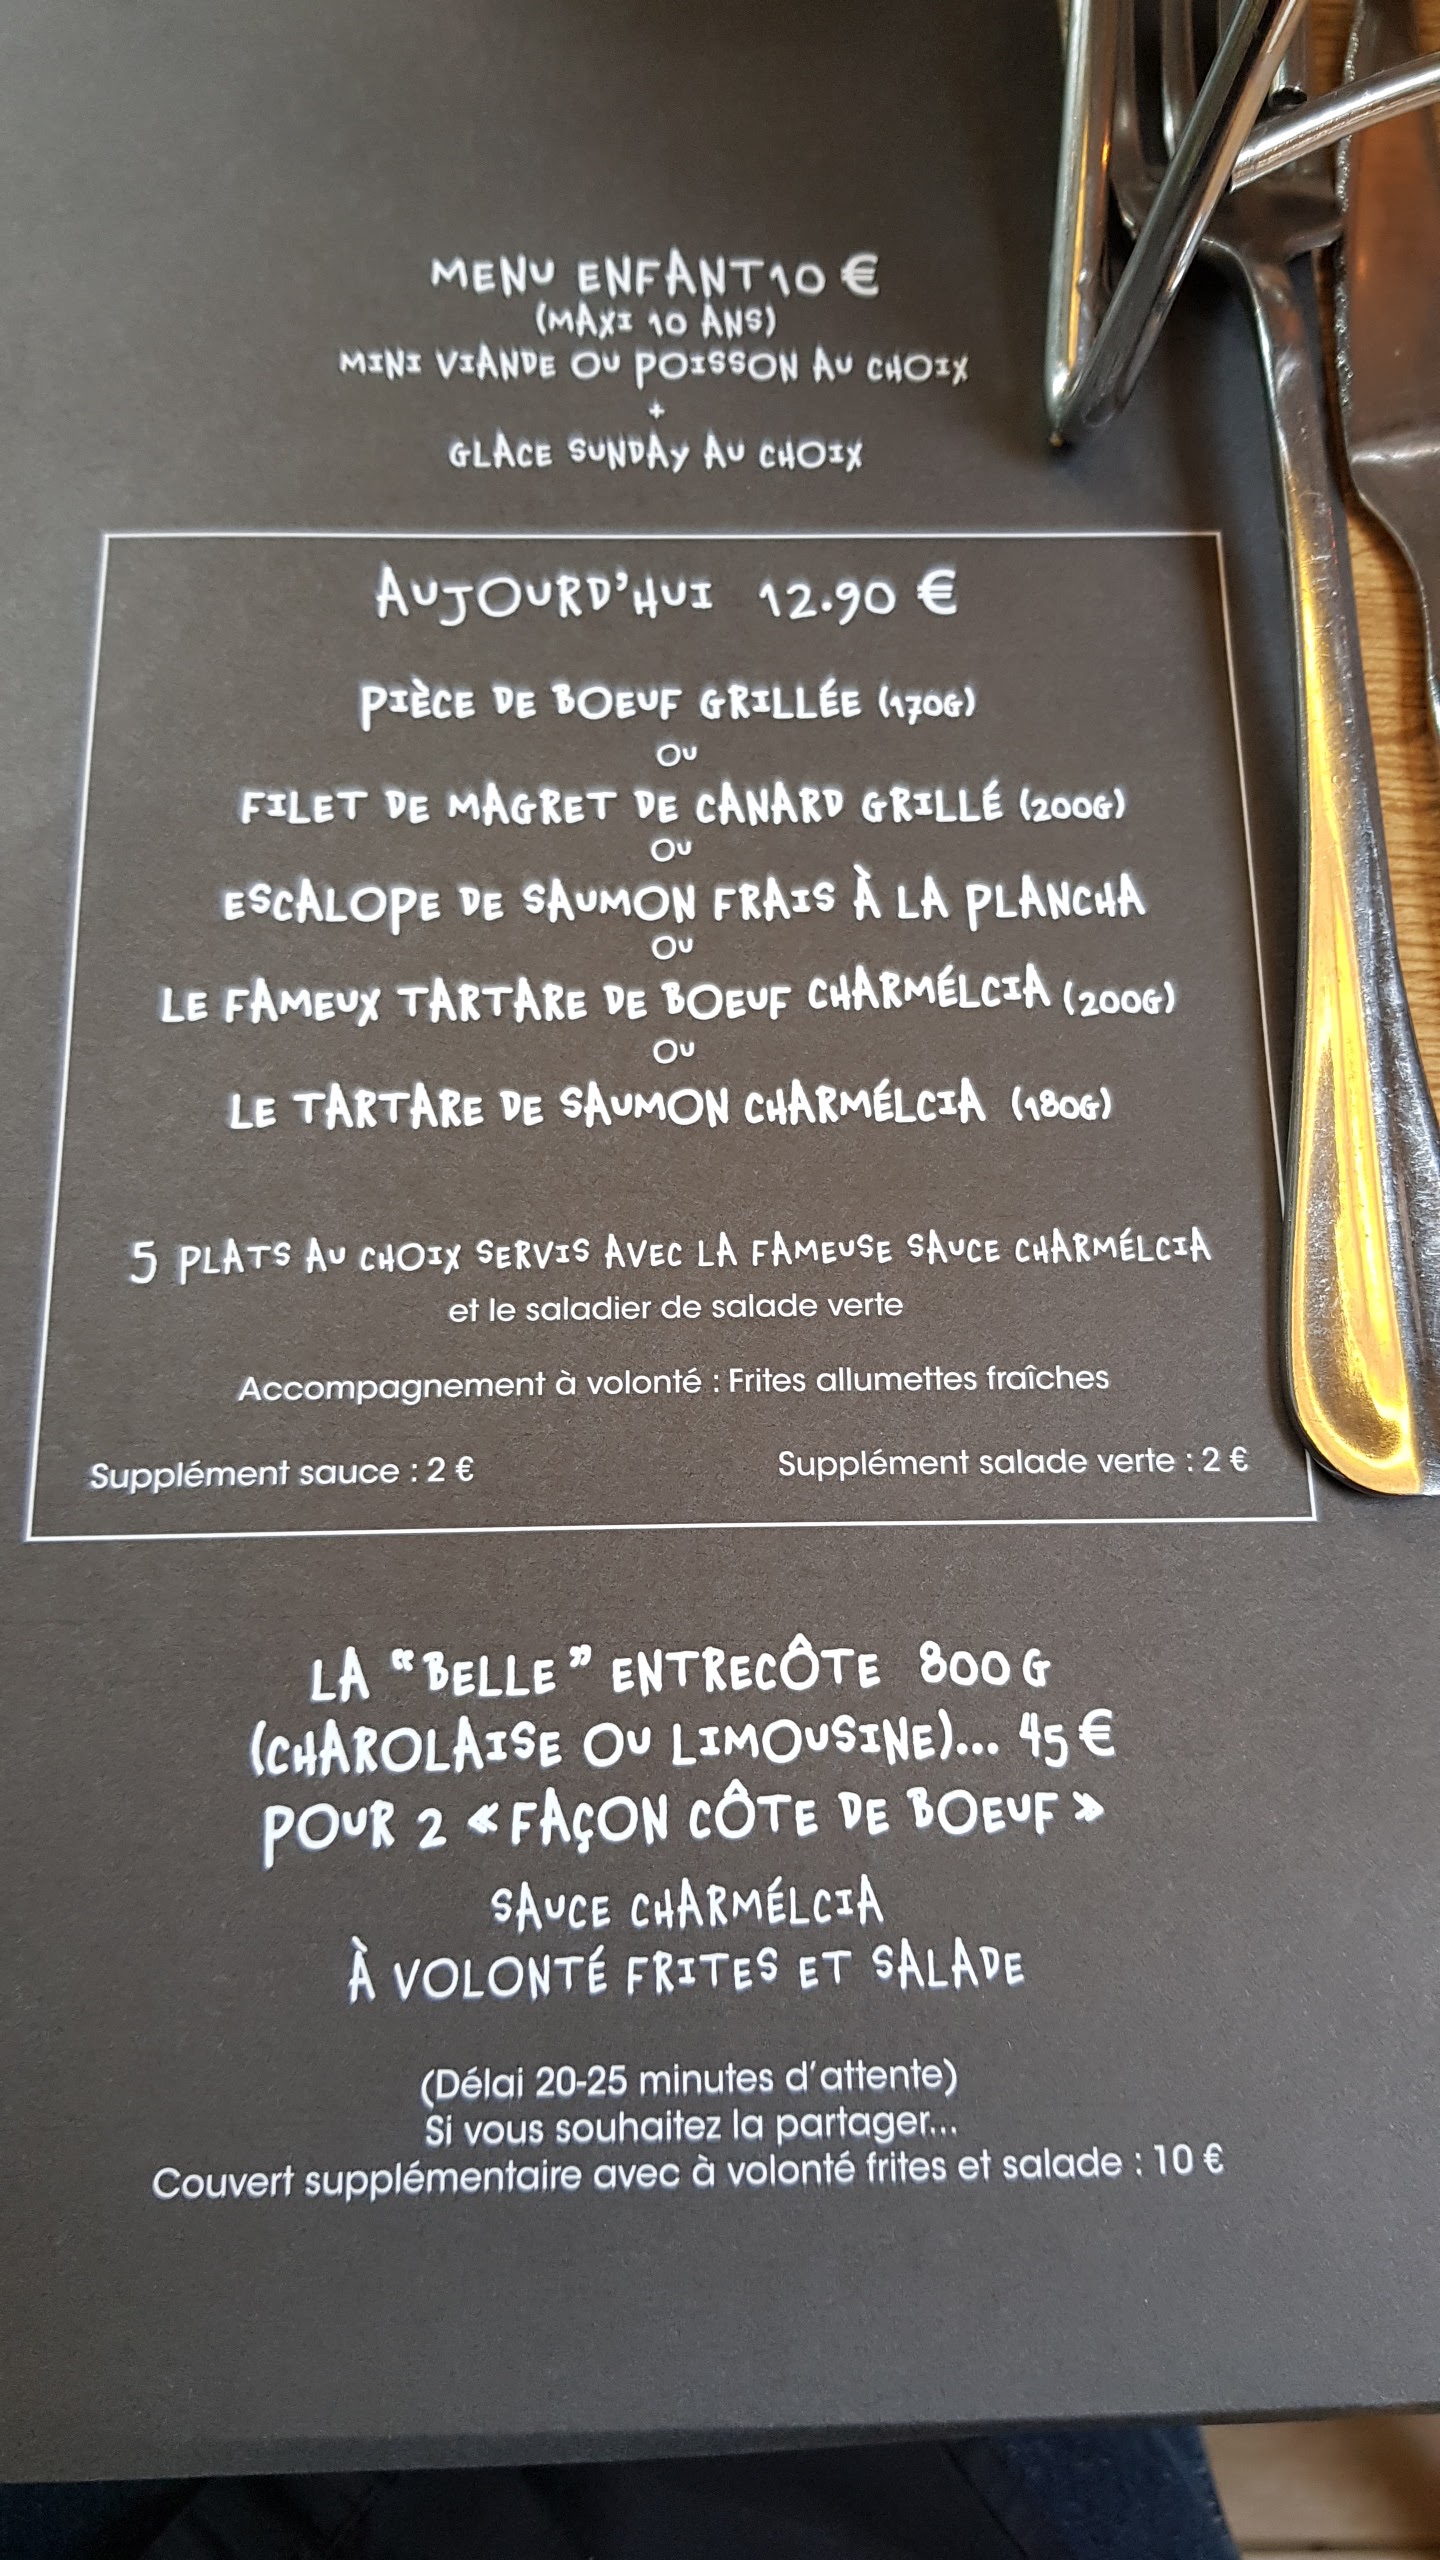 MENU ENFANT 10 €
(MAXI 10 ANS)
MINI VIANDE OU POISSON AU CHOIX
+
GLACE SUNDAY AU CHOIX
AUJOURD'HUI 12.90 €
PIÈCE DE BOEUF GRILLÉE (170G)
OU
FILET DE MAGRET DE CANARD GRILLÉ (200G)
OU
ESCALOPE DE SAUMON FRAIS À LA PLANCHA
OU
LE FAMEUX TARTARE DE BOEUF CHARMÉLCIA (200G)
OU
LE TARTARE DE SAUMON CHARMÉLCIA (180G)
5 PLATS AU CHOIX SERVIS AVEC LA FAMEUSE SAUCE CHARMÉLCIA
et le saladier de salade verte
Accompagnement à volonté : Frites allumettes fraîches
Supplément sauce : 2 €
Supplément salade verte : 2 €
LA "BELLE" ENTRECÔTE 800 G
(CHAROLAISE OU LIMOUSINE)... 45 €
POUR 2 « FAÇON CÔTE DE BOEUF »
SAUCE CHARMÉLCIA
À VOLONTÉ FRITES ET SALADE
(Délai 20-25 minutes d'attente)
Si vous souhaitez la partager...
Couvert supplémentaire avec à volonté frites et salade : 10 €